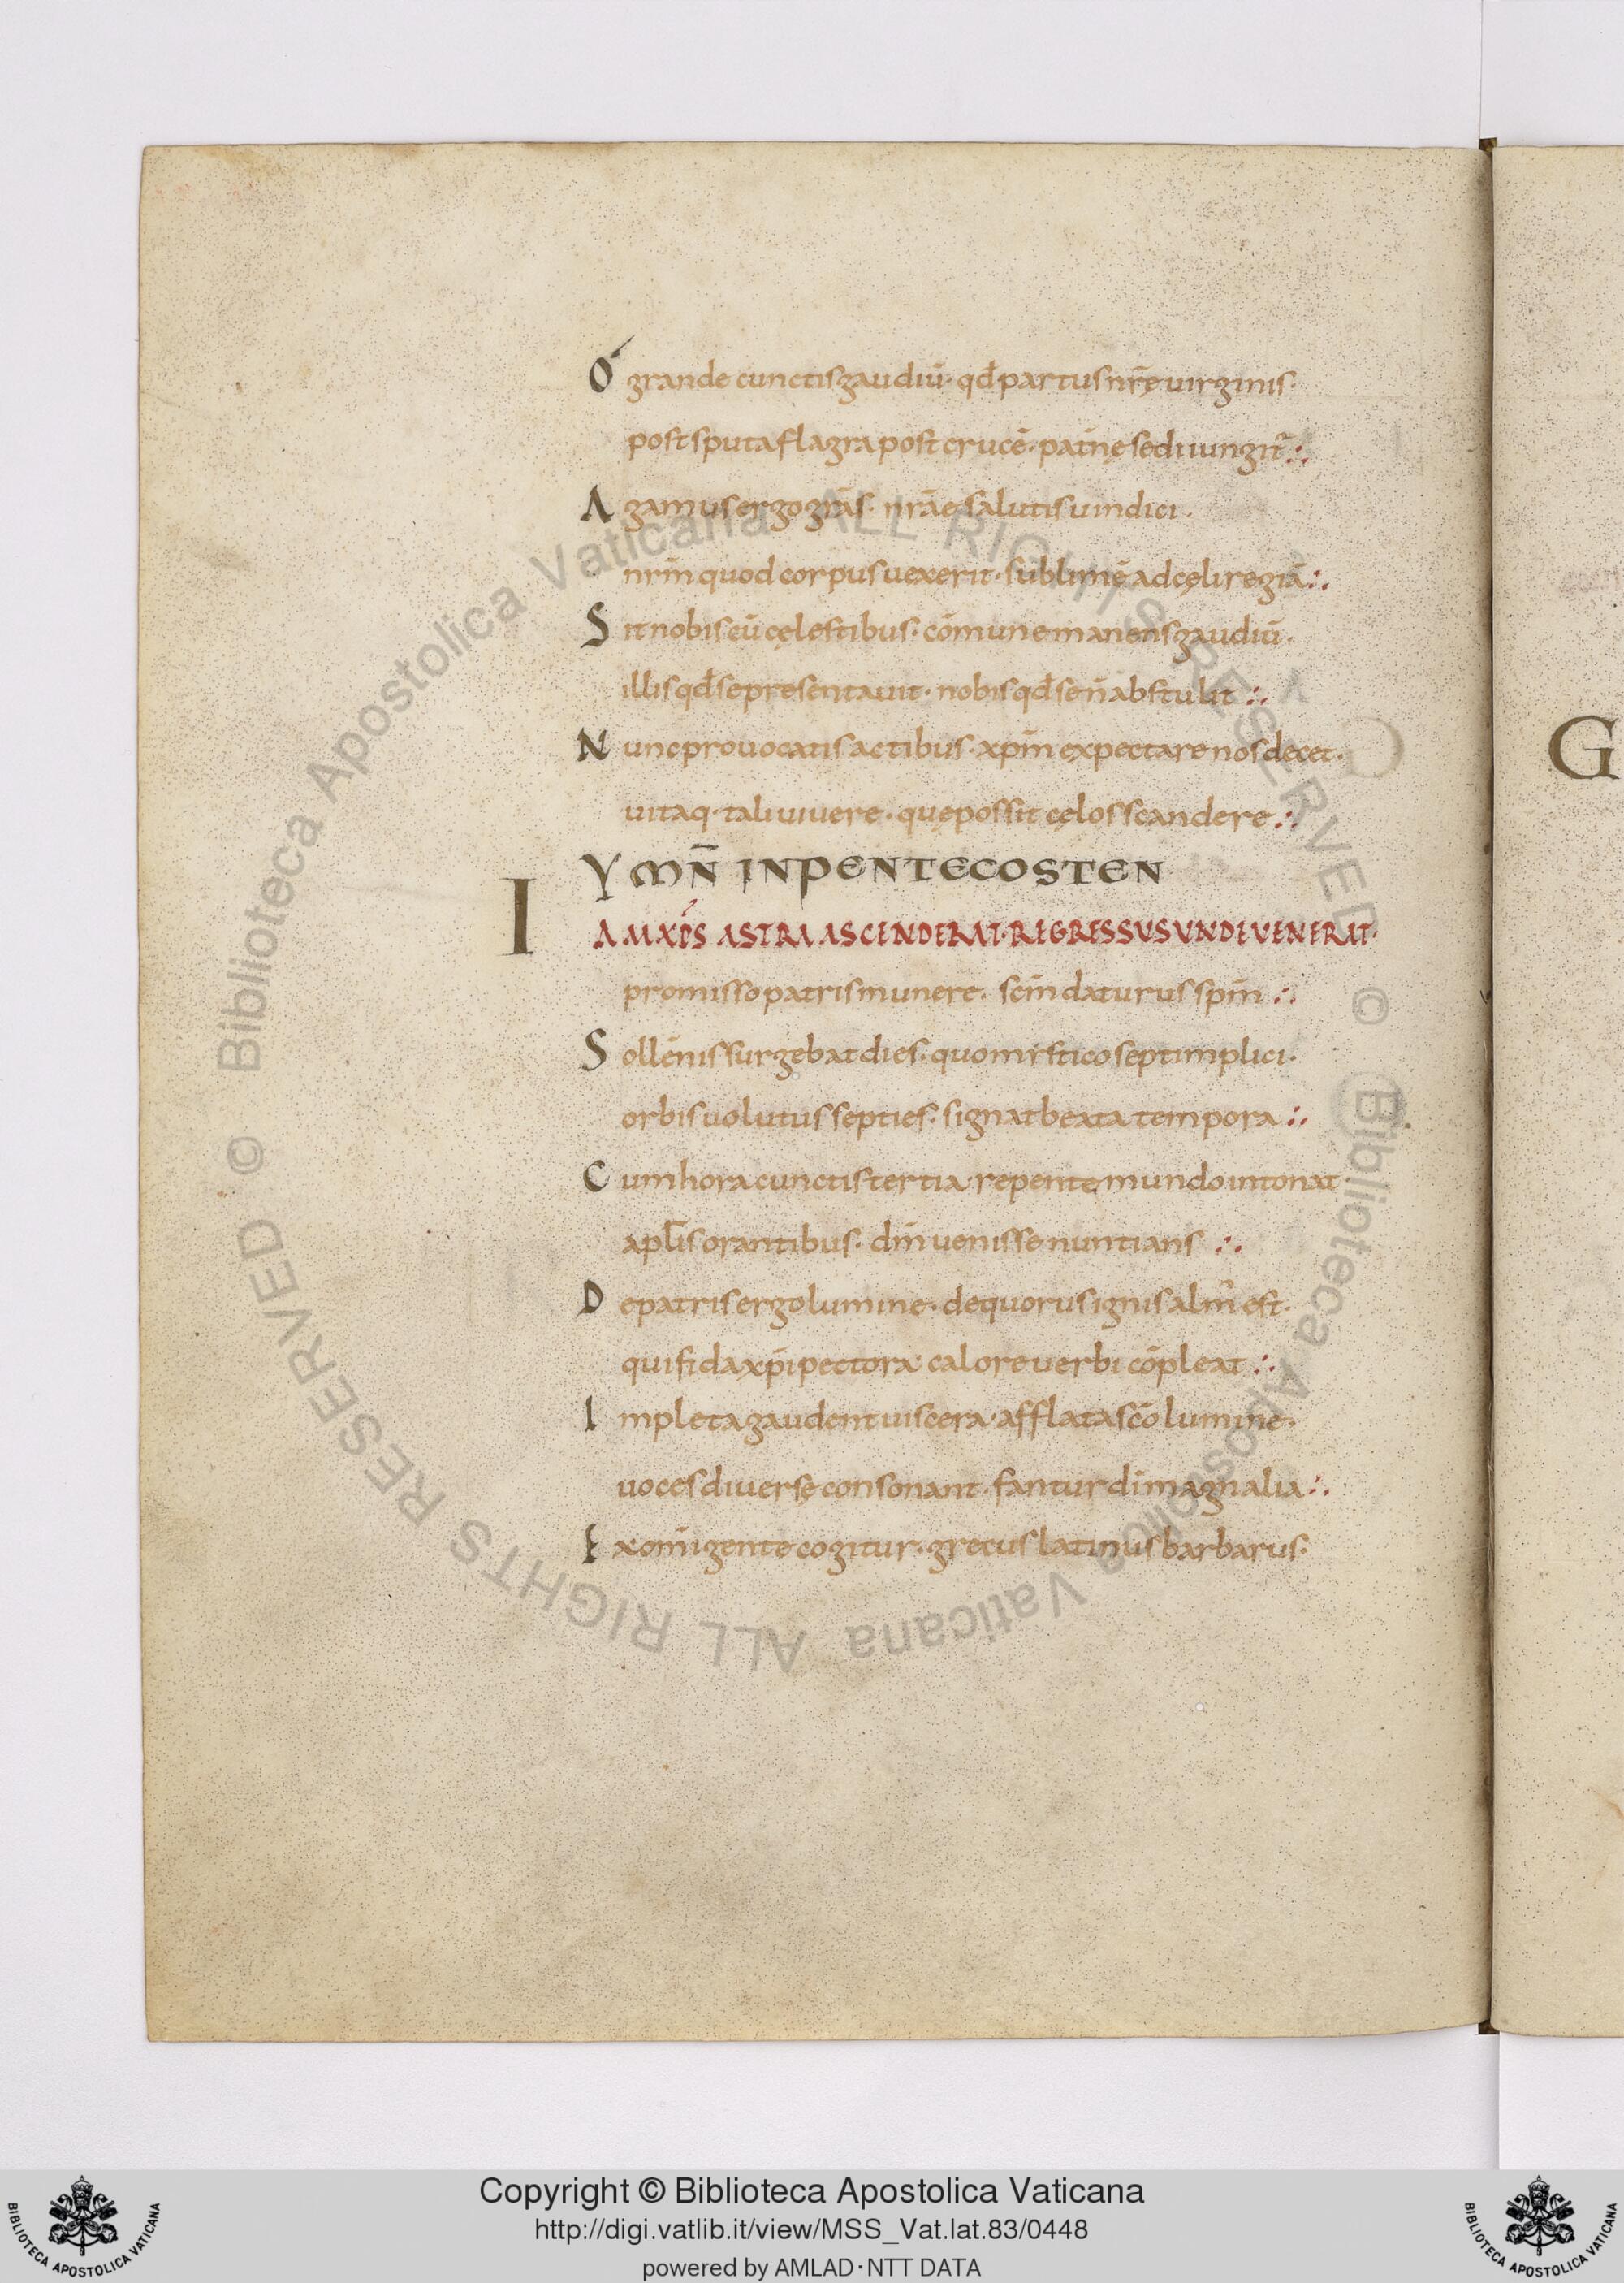 O grande cunctis gaudiū· qđ partus nr̄ę uirginis·
post sputa flagra post crucē· patrię sedi iungit᷑ :·
A gamus ergo grās· nrāe salutis uindici·
nrm̄ quod corpus uexerit· sublimē ad cęli regiā :·
S it nobis cū cęlestibus· cōmune manens gaudiū·
illis qđ se presentauit· nobis qđ se n̄ abstulit :·
N unc prouocatis actibus· xpm̄ expectare nos decet·
uitaq· tali uiuere· quę possit cęlos scandere :·
YMN̄ IN PENTECOSTEN
I AM XP̄S ASTRA ASCENDERAT· REGRESSUS UNDE VENERAT·
promisso patris munere· scm̄ daturus spm̄ :·
S ollēnis surgebat dies· quo mistico septimplici·
orbis uolutus septies· signat beata tempora :·
C um hora cunctis tertia· repente mundo intonat·
apl̄is orantibus· dm̄ uenisse nuntians :·
D e patris ergo lumine· decorus ignis alm᷒ est·
qui fida xp̄i pectora· calore uerbi cōpleat :·
I mpleta gaudent uiscera· afflata scō lumine·
uoces diuersę consonant· fantur dī magnalia :·
E x om̄i gente cogitur· grecus latinus barbarus·
G
Copyright © Biblioteca Apostolica Vaticana
http://digi.vatlib.it/view/MSS_Vat.lat.83/0448
powered by AMLAD·NTT DATA
BIBLIOTECA APOSTOLICA VATICANA
BIBLIOTECA APOSTOLICA VATICANA
© Biblioteca Apostolica Vaticana ALL RIGHTS RESERVED
© Biblioteca Apostolica Vaticana ALL RIGHTS RESERVED